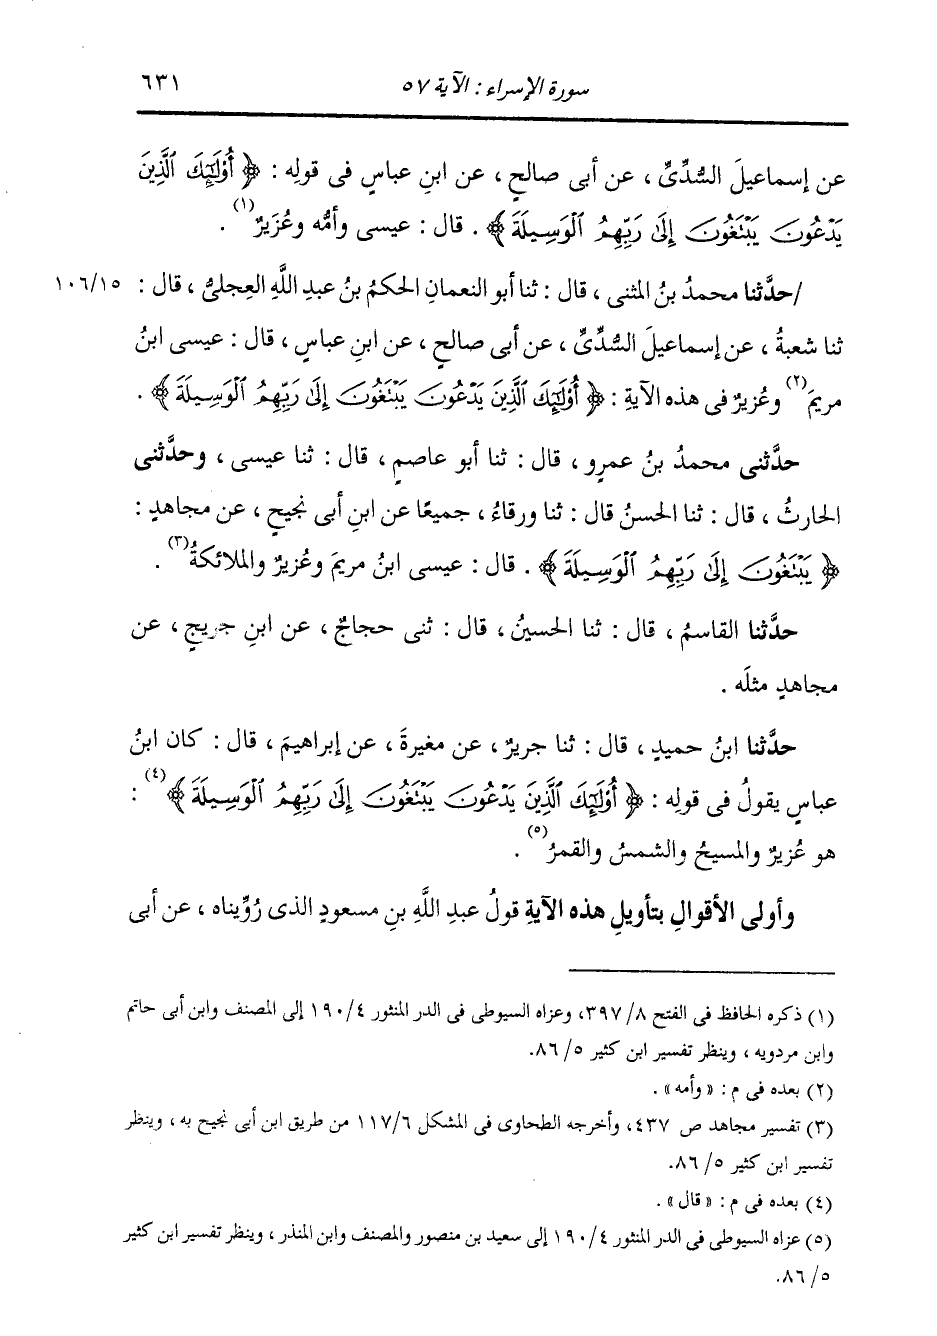 سورة الإسراء : الآية ٥٧
٦٣١
عن إسماعيلَ السُّدِّىِّ ، عن أبى صالحٍ ، عن ابنِ عباسٍ فى قولِه : ﴿ أُوْلَٰٓئِكَ ٱلَّذِينَ
يَدْعُونَ يَبْتَغُونَ إِلَىٰ رَبِّهِمُ ٱلْوَسِيلَةَ ﴾ . قال : عيسى وأمُّه وعُزَيرٌ(١) .
/حدَّثنا محمدُ بنُ المثنى ، قال : ثنا أبو النعمانِ الحكمُ بنُ عبدِ اللَّهِ العِجلىُّ ، قال : ١٠٦/١٥
ثنا شعبةُ ، عن إسماعيلَ السُّدِّىِّ ، عن أبى صالحٍ ، عن ابنِ عباسٍ ، قال : عيسى ابنُ
مريمَ(٢) وعُزيرٌ فى هذه الآيةِ : ﴿ أُوْلَٰٓئِكَ ٱلَّذِينَ يَدْعُونَ يَبْتَغُونَ إِلَىٰ رَبِّهِمُ ٱلْوَسِيلَةَ ﴾ .
حدَّثنى محمدُ بنُ عمرٍو ، قال : ثنا أبو عاصمٍ ، قال : ثنا عيسى ، وحدَّثنى
الحارثُ ، قال : ثنا الحسنُ قال : ثنا ورقاءُ ، جميعًا عن ابنِ أبى نجيحٍ ، عن مجاهدٍ :
﴿ يَبْتَغُونَ إِلَىٰ رَبِّهِمُ ٱلْوَسِيلَةَ ﴾ . قال : عيسى ابنُ مريمَ وعُزيرٌ والملائكةُ(٣) .
حدَّثنا القاسمُ ، قال : ثنا الحسينُ ، قال : ثنى حجاجٌ ، عن ابنِ جريجٍ ، عن
مجاهدٍ مثلَه .
حدَّثنا ابنُ حميدٍ ، قال : ثنا جريرٌ ، عن مغيرةَ ، عن إبراهيمَ ، قال : كان ابنُ
عباسٍ يقولُ فى قولِه : ﴿ أُوْلَٰٓئِكَ ٱلَّذِينَ يَدْعُونَ يَبْتَغُونَ إِلَىٰ رَبِّهِمُ ٱلْوَسِيلَةَ ﴾(٤) :
هو عُزيرٌ والمسيحُ والشمسُ والقمرُ(٥) .
وأولى الأقوالِ بتأويلِ هذه الآيةِ قولُ عبدِ اللَّهِ بنِ مسعودٍ الذى رُوِّيناه ، عن أبى
(١) ذكره الحافظ فى الفتح ٨/ ٣٩٧، وعزاه السيوطى فى الدر المنثور ٤/ ١٩٠ إلى المصنف وابن أبى حاتم
وابن مردويه ، وينظر تفسير ابن كثير ٥/ ٨٦.
(٢) بعده فى م : « وأمه » .
(٣) تفسير مجاهد ص ٤٣٧، وأخرجه الطحاوى فى المشكل ٦/ ١١٧ من طريق ابن أبى نجيح به ، وينظر
تفسير ابن كثير ٥/ ٨٦.
(٤) بعده فى م : « قال » .
(٥) عزاه السيوطى فى الدر المنثور ٤/ ١٩٠ إلى سعيد بن منصور والمصنف وابن المنذر ، وينظر تفسير ابن كثير
٥/ ٨٦.